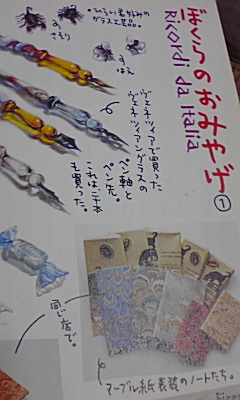 ぼくらのおみやげ①
Ricordi da Italia
ひろい若好みの
ガラス工芸品。
さそり
はえ
ヴェネツィアで買った
ヴェネツィアングラスの
ペン軸と
ペン先。
これは二本
も買った。
同じ店で。
マーブル紙表装のノートたち。